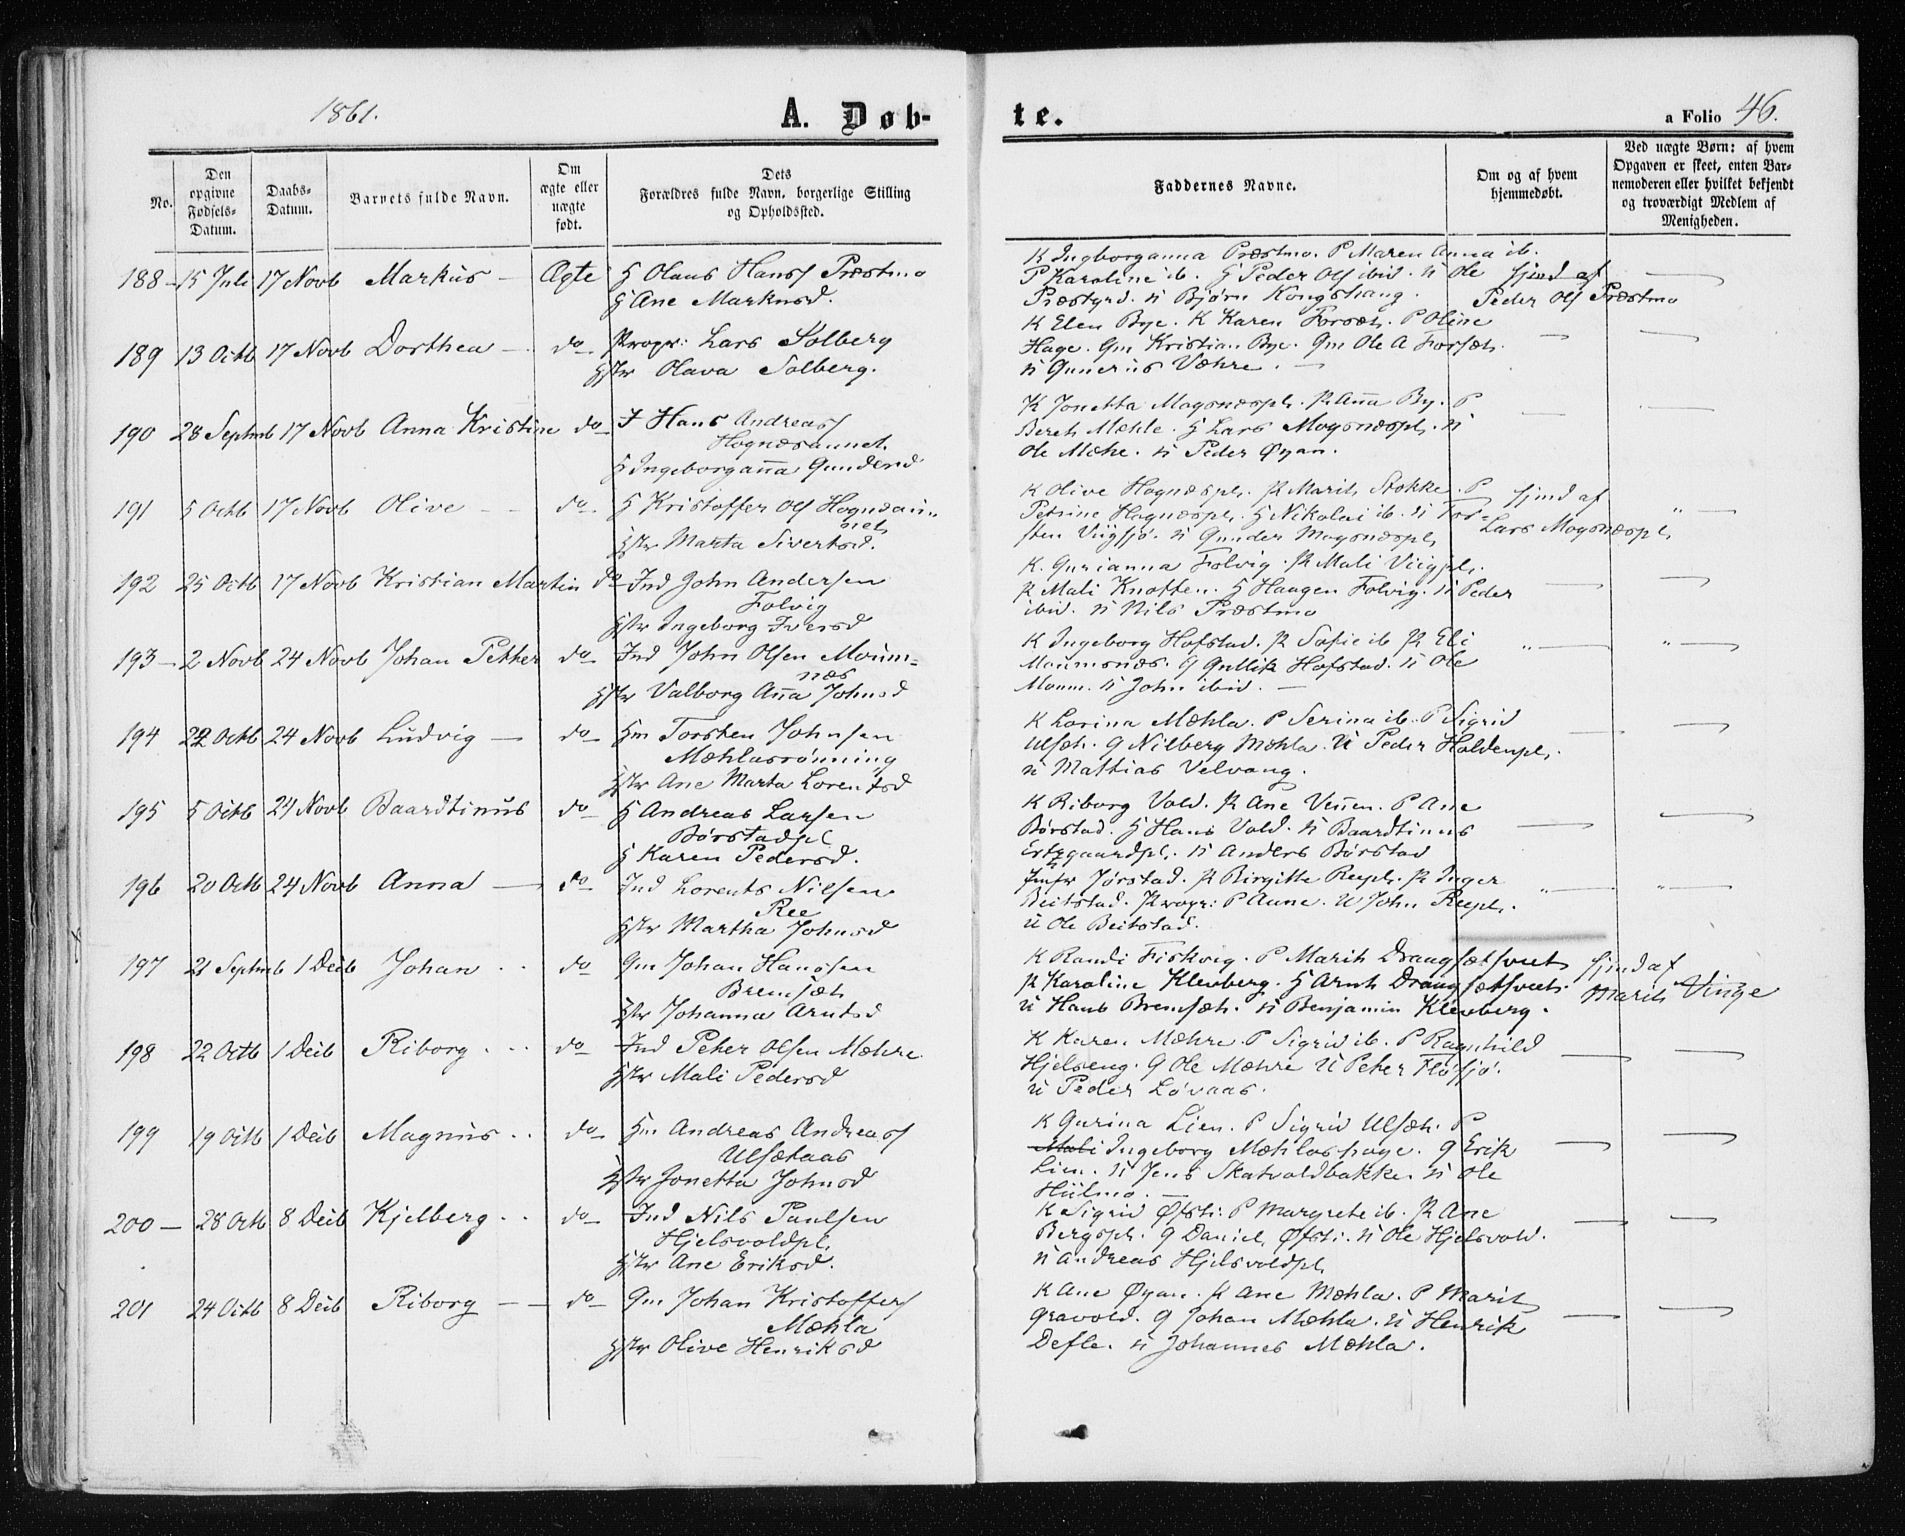 1861.
A. Døb-
te.
a Folio 46.
No.
Den opgivne Fødsels-Datum.
Daabs-Datum.
Barnets fulde Navn.
Om ægte eller uægte født.
Dets Forældres fulde Navn, borgerlige Stilling og Opholdssted.
Faddernes Navne.
Om og af hvem hjemmedøbt.
Ved uægte Børn: af hvem Opgaven er skeet, enten Barnemoderen eller hvilket bekjendt og troværdigt Medlem af Menigheden.
188 - 15 Juli 17 Novb Markus - Ægte G Olaus Hans Præstmo
G Ane Markusd.
K Ingeborganna Præstmo. P Maren Anna ib.
P Karoline ib. G Peder Ols ibid. U Ole
Præstgrd. U Bjørn Kongshaug.
hjmd af
Peder Ols Præstmo
189 13 Octb 17 Novb Dorthea - do Propr: Lars Solberg
Hstr Olava Solberg.
K Elen Bye. K Karen Forsæt. P Oline
Hage. Gm Kristian Bye. Gm Ole A Forsæt.
U Gunerius Væhre.
190 28 Septmb 17 Novb Anna Kristine do I Hans Andreass
Hognæsaunet.
G Ingeborganna Gundersd
K Jonetta Mogsnæspl. P Anna By. P
Bereth Mæhle. G Lars Mogsnæspl. U
Ole Mæhe. U Peder Øyan.
191 5 Octb 17 Novb Olive - - do. G Kristoffer Ols Hognæsau-
net
Hstr Marta Sivertsd.
K Olive Hognæspl. P Marit Stokke. P
Petrine Hognæspl. G Nikolai ib. U Tor-
sten Viigsjø. U Gunder Mogsnæspl
hjmd af
Lars Mogsnæspl.
192 25 Octb 17 Novb Kristian Martin do Ind John Andersen
Folvig
Hstr Ingeborg Iversd
K. Gurianna Folvig. P Mali Viigpl.
P Mali Knotten. G Haagen Folvig. U Peder
ibid. U Nils Præstmo
193 - 2 Novb 24 Novb Johan Petter do Ind John Olsen Moum-
næs
Hstr Valborg Anna Johnsd
K Ingeborg Hofstad. P Sofie ib P Eli
Moumsnæs. G Gullik Hofstad. U Ole
Moum. U John ibid.
194 22 Octb 24 Novb Ludvig - do Hm Torsten Johnsen
Mæhlasrønning
Hstr Ane Marta Lorentsd
K Lorina Mæhla. P Serina ib. P Sigrid
Ulsæt. G Nilberg Mæhla. U Peder Haldenpl.
U Mathias Velvang.
195 5 Octb 24 Novb Baardtinus do G Andreas Larsen
Børstadpl
G Karen Pedersd.
K Riborg Vold. P Ane Vennen. P Ane
Børstad. G Hans Vold. U Baardtinus
Ertzgaardpl. U Anders Børstad
196 20 Octb 24 Novb Anna - do Ind Lorents Nilsen
Ree
Hstr Martha Johnsd
Jørstad. P Birgitte Reepl. P Inger
Beitstad. Propr: P Aune. U John Reepl.
U Ole Beitstad.
197 21 Septmb 1 Decb Johan . . do Gm Johan Hansen
Bremsæt
Hstr Johanna Arntsd
K Randi Fiskvig. P Marit Draagsætsveet
P Karoline Klevberg. G Arnt Draagsætsveet.
U Hans Bremsæt. U Benjamin Klevberg.
hjmd af
Marit Vinge
198 22 Octb 1 Decb Riborg . . . do Ind Peter Olsen Mæhre
Hstr Mali Pedersd
K Karen Mæhre. P Sigrid ib. P Ragnhild
Hjelseng. G Ole Mæhre U Peter Fløsjø.
U Peder Løvaas.
199 19 Octb 1 Decb Magnus . . do Hm Andreas Andreass
Ulsætaas
Hstr Jonetta Johnsd
K Gurina Lien. P Sigrid Ulsæt. P
Mali Ingeborg Mæhlashage. G Erik
Lien. U Jens Skatvoldbakke. U Ole
Hülmo.
200 - 28 Octb 8 Decb Kjelberg . . do Ind Nils Paulsen
Hjelsvoldpl.
Hstr Ane Eriksd.
K Sigrid Øfsti. P Margrete ib. P Ane
Bergspl. G Daniel Øfsti. U Ole Hjelsvold.
U Andreas Hjelsvoldpl.
201 24 Octb 8 Decb Riborg - - do Gm Johan Kristoffers
Mæhla
Hstr Olive Henriksd
K Ane Øyan. P Ane Mæhla. P Marit
Gravold. G Johan Mæhla. U Henrik
Defle. U Johannes Mæhla.